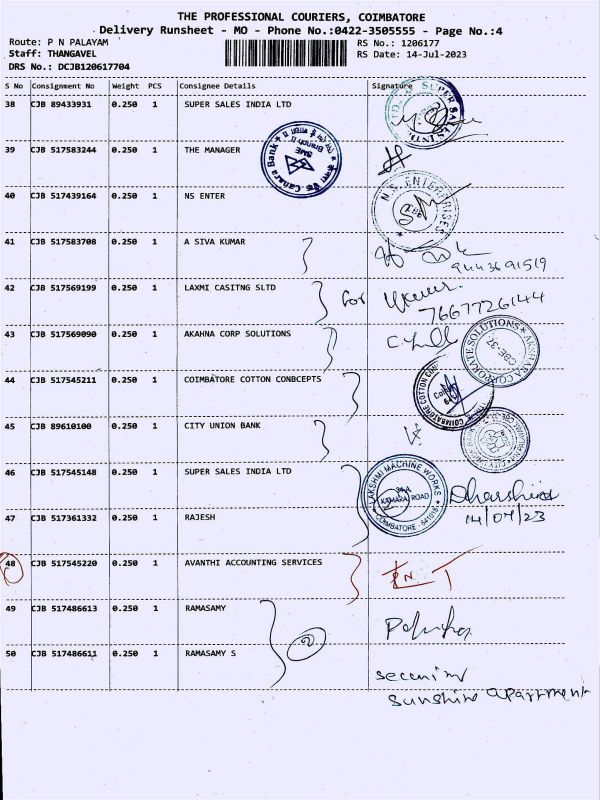 THE PROFESSIONAL COURIERS, COIMBATORE
Delivery Runsheet - MO - Phone No.:0422-3505555 - Page No.:4
Route: P N PALAYAM RS No.: 1206177
Staff: THANGAVEL RS Date: 14-Jul-2023
DRS No.: DCJB120617704
S No Consignment No Weight PCS Consignee Details Signature
38 CJB 89433931 0.250 1 SUPER SALES INDIA LTD
SUPER SALES
39 CJB 517583244 0.250 1 THE MANAGER
Canara Bank SME Branch II
40 CJB 517439164 0.250 1 NS ENTER
N.S. ENTERPRISES
41 CJB 517583708 0.250 1 A SIVA KUMAR
9443691519
42 CJB 517569199 0.250 1 LAXMI CASITNG SLTD
for
7667726144
43 CJB 517569090 0.250 1 AKAHNA CORP SOLUTIONS
CBE-37
44 CJB 517545211 0.250 1 COIMBATORE COTTON CONBCEPTS
COIMBATORE COTTON
45 CJB 89610100 0.250 1 CITY UNION BANK
46 CJB 517545148 0.250 1 SUPER SALES INDIA LTD
LAKSHMI MACHINE WORKS
34-A
KAMARAJ ROAD
COIMBATORE - 641018
Dharshini
14/07/23
47 CJB 517361332 0.250 1 RAJESH
48 CJB 517545220 0.250 1 AVANTHI ACCOUNTING SERVICES
49 CJB 517486613 0.250 1 RAMASAMY
50 CJB 517486611 0.250 1 RAMASAMY S
sunshine apartment